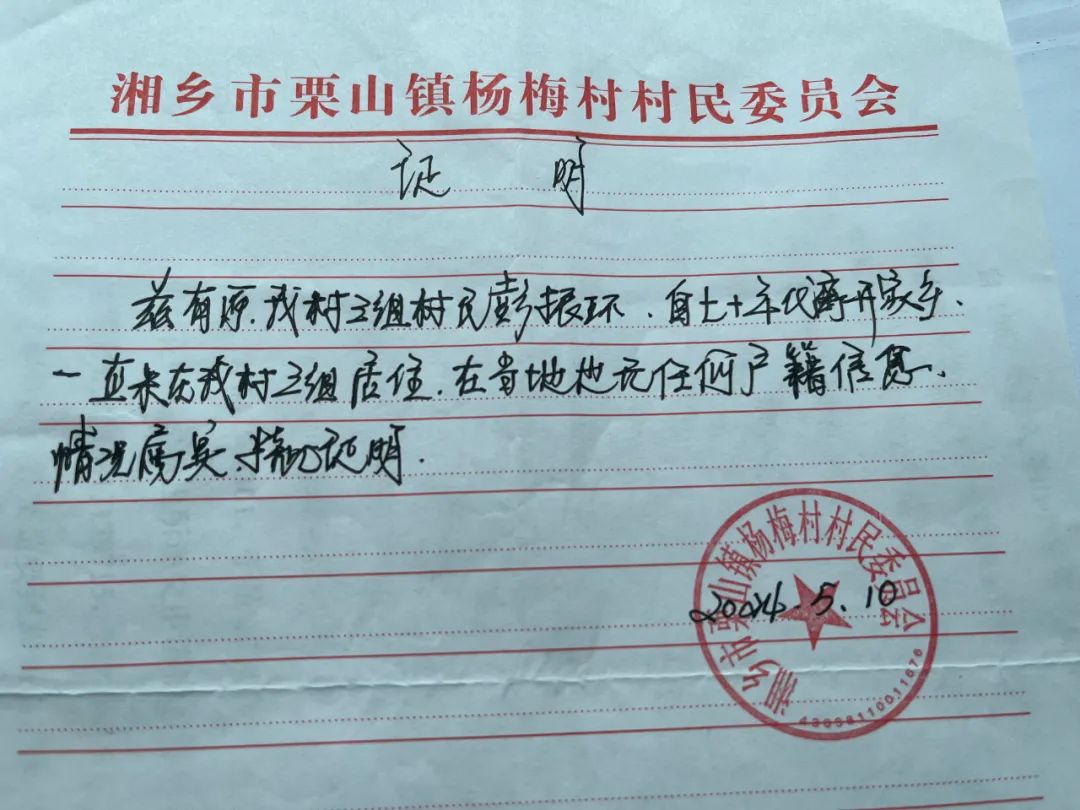 湘乡市栗山镇杨梅村村民委员会
证 明
兹有原.我村三组村民彭振环.自七十年代离开家乡.
一直未在我村三组居住.在当地也无任何户籍信息.
情况属实.特此证明.
湘乡市栗山镇杨梅村村民委员会
2024.5.10
43038110011676